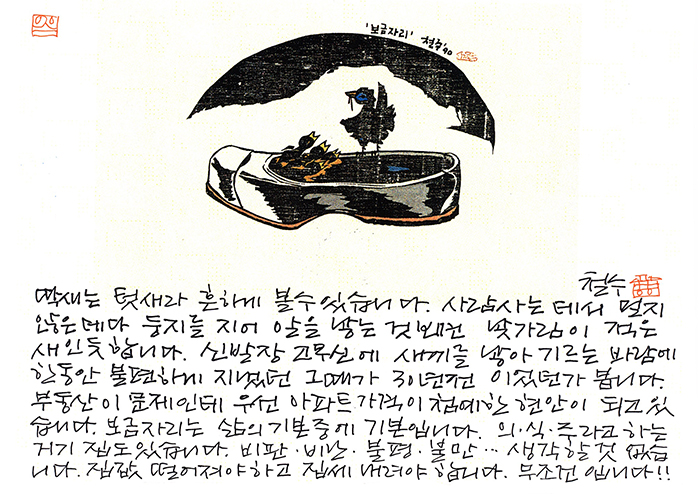 '보금자리' 철수 '90
철수
딱새는 텃새라 흔하게 볼수 있습니다. 사람사는 데서 멀지
않은데다 둥지를 지어 알을 낳는 것 보면 낯가림이 적은
새인듯합니다. 신발장 고무신에 새끼를 낳아 기르는 바람에
한동안 불편하게 지냈던 그때가 30년전 이었던가 봅니다.
부동산이 문제인데 우선 아파트가격이 첨예한 현안이 되고있
습니다. 보금자리는 삶의 기본중에 기본입니다. 의·식·주라고 하는
거기 집도있습니다. 비판·비난·불평·불만… 생각할것 없습
니다. 집값 떨어져야하고 집세 내려야 합니다. 무조건 입니다!!